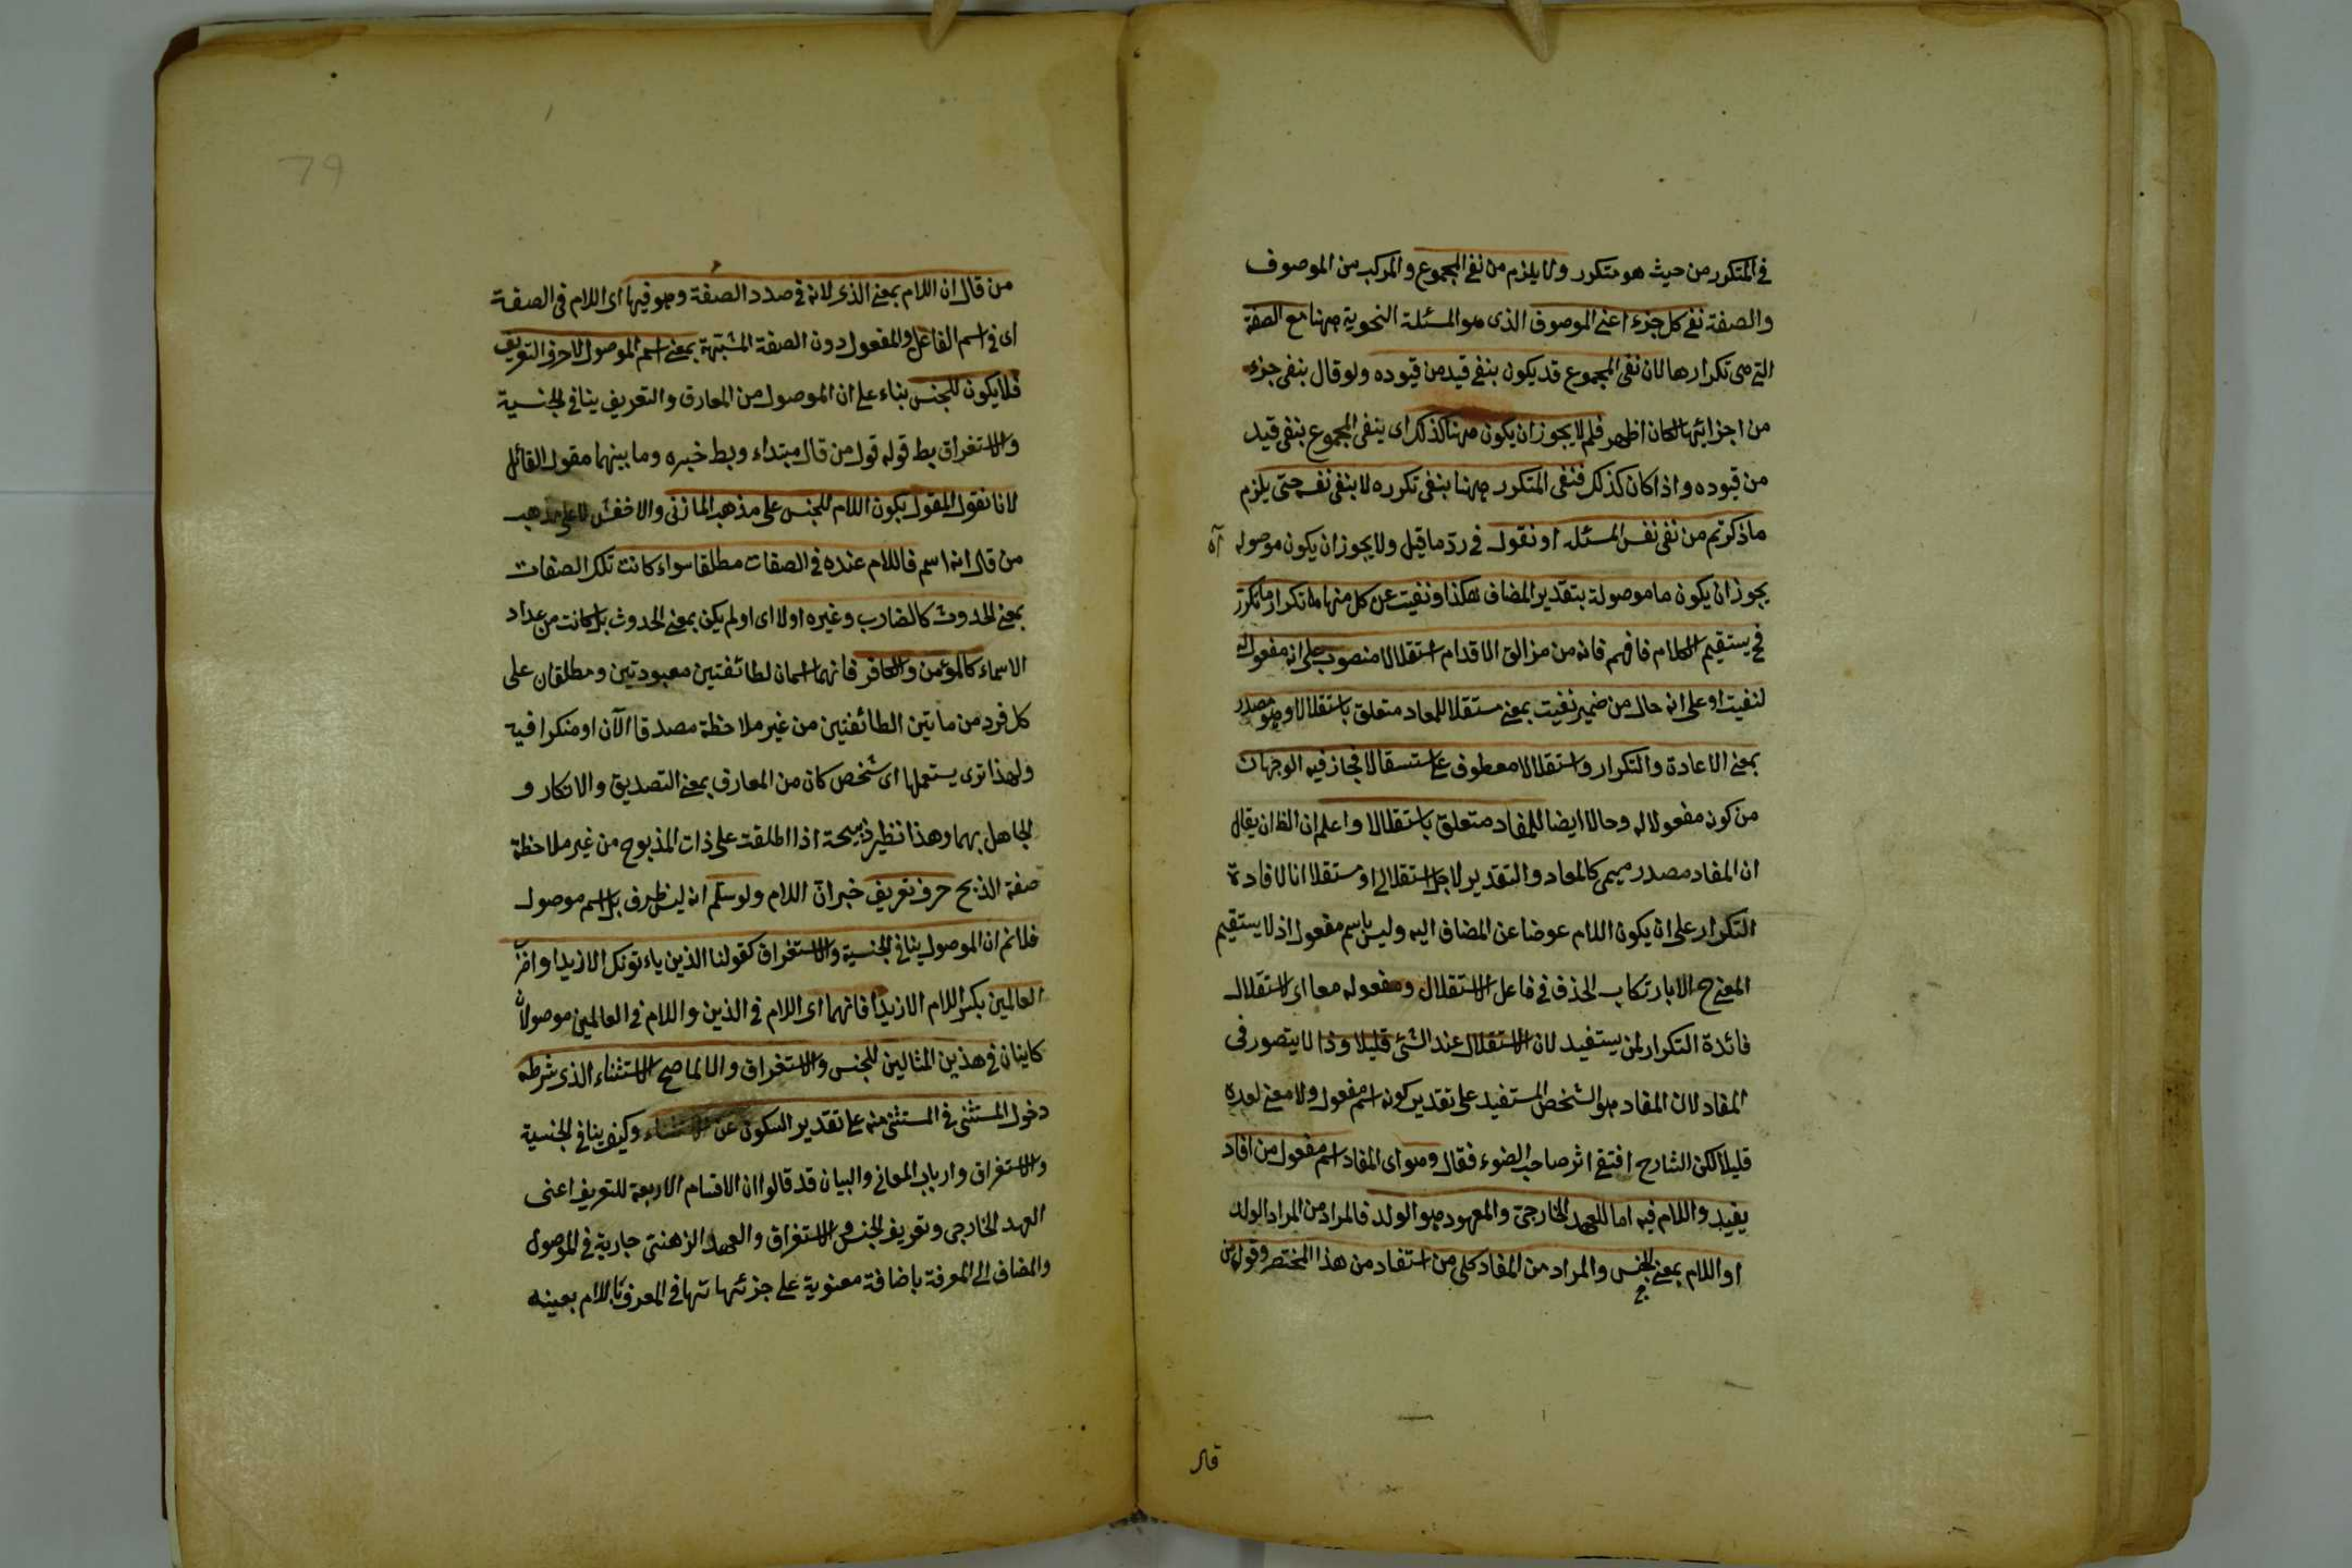 في المتكرر من حيث هو متكرر ولا يلزم من نفي المجموع والمركب من الموصوف
والصفة نفي كل جزء اعني الموصوف الذي هو المسئلة النحوية ههنا مع الصفة
التي هي تكرارها لان نفي المجموع قد يكون بنفي قيد من قيوده ولو قال بنفي جزء
من اجزائها لكان اظهر فلم لا يجوز ان يكون ههنا كذلك اى ينفي المجموع بنفي قيد
من قيوده واذا كان كذلك فنفي المتكرر ههنا بنفي تكرره لا بنفي نفسه حتى يلزم
ماذكرتم من نفي نفس المسئلة او نقول في رد ما قيل ولا يجوز ان يكون موصوله آه
يجوز ان يكون ما موصولة بتقدير المضاف هكذا ونفيت عن كل منها تكرار ما تكرر
فح يستقيم الكلام فافهم فانه من مزالق الاقدام استقلالا منصوب على انه مفعول له
لنفيت او على انه حال من ضمير نفيت بمعنى مستقلا للمعاد متعلق باستقلالا وهو مصدر
بمعنى الاعادة والتكرار واستقلالا معطوف على استقلالا فجاز فيه الوجهان
من كونه مفعولا له وحالا ايضا للمفاد متعلق باستقلالا واعلم ان الظ ان يقال
ان المفاد مصدر ميمي كالمعاد والتقدير لاجل استقلالي او مستقلا انا لافادة
التكرار على ان يكون اللام عوضا عن المضاف اليه وليس باسم مفعول اذ لا يستقيم
المعنى ح الا بارتكاب الحذف في فاعل الاستقلال ومفعوله معا اى استقلال
فائدة التكرار لمن يستفيد لان الاستقلال عند الشئ قليلا وذا لا يتصور في
المفاد لان المفاد هو الشخص المستفيد على تقدير كونه اسم مفعول ولا معنى لعده
قليلا لكن الشارح اقتفى اثر صاحب الضوء فقال وهو اى المفاد اسم مفعول من افاد
يفيد واللام فيه اما للعهد الخارجي والمعهود هو الولد فالمراد من المراد الولد
او اللام بمعنى الجنس والمراد من المفاد كل من استفاد من هذا المختصر وقول من
قال
79
من قال ان اللام بمعنى الذي لانه في صدد الصفة وهو فيها اى اللام في الصفة
اى في اسم الفاعل والمفعول دون الصفة المشبهة بمعنى اسم الموصول لا حرف التعريف
فلا يكون للجنس بناء على ان الموصول من المعارف والتعريف ينافي الجنسية
والاستغراق بط قوله قول من قال مبتداء وبط خبره وما بينهما مقول القائل
لانا نقول المقول بكون اللام للجنس على مذهب المازني والاخفش لا على مذهب
من قال انه اسم فاللام عنده في الصفات مطلقا سواء كانت تلك الصفات
بمعنى الحدوث كالضارب وغيره اولا اى او لم يكن بمعنى الحدوث بل كانت من عداد
الاسماء كالمؤمن والكافر فانهما اسمان لطائفتين معهودتين ومطلقان على
كل فرد من هاتين الطائفتين من غير ملاحظة مصدقا الآن او منكرا فيه
ولهذا ترى يستعملها اى شخص كان من المعارف بمعنى التصديق والانكار و
الجاهل بهما وهذا نظير ذبيحة اذا اطلقت على ذات المذبوح من غير ملاحظة
صفة الذبح حرف تعريف خبر ان اللام ولو سلم انه ليس بحرف بل اسم موصول
فلانم ان الموصول ينافي الجنسية والاستغراق كقولنا الذين ياءتونك الا زيدا واضرب
العالمين بكسر اللام الا زيدا فانهما اى اللام في الذين واللام في العالمين موصولان
كاينان في هذين المثالين للجنس والاستغراق والا لما صح الاستثناء الذي شرطه
دخول المستثنى في المستثنى منه على تقدير السكوت عن الاستثناء وكيف ينافي الجنسية
والاستغراق وارباب المعاني والبيان قد قالوا ان الاقسام الاربعة للتعريف اعنى
العهد الخارجي وتعريف الجنس والاستغراق والعهد الذهني جارية في الموصول
والمضاف الى المعرفة باضافة معنوية على جزئها تها في المعرف باللام بعينه